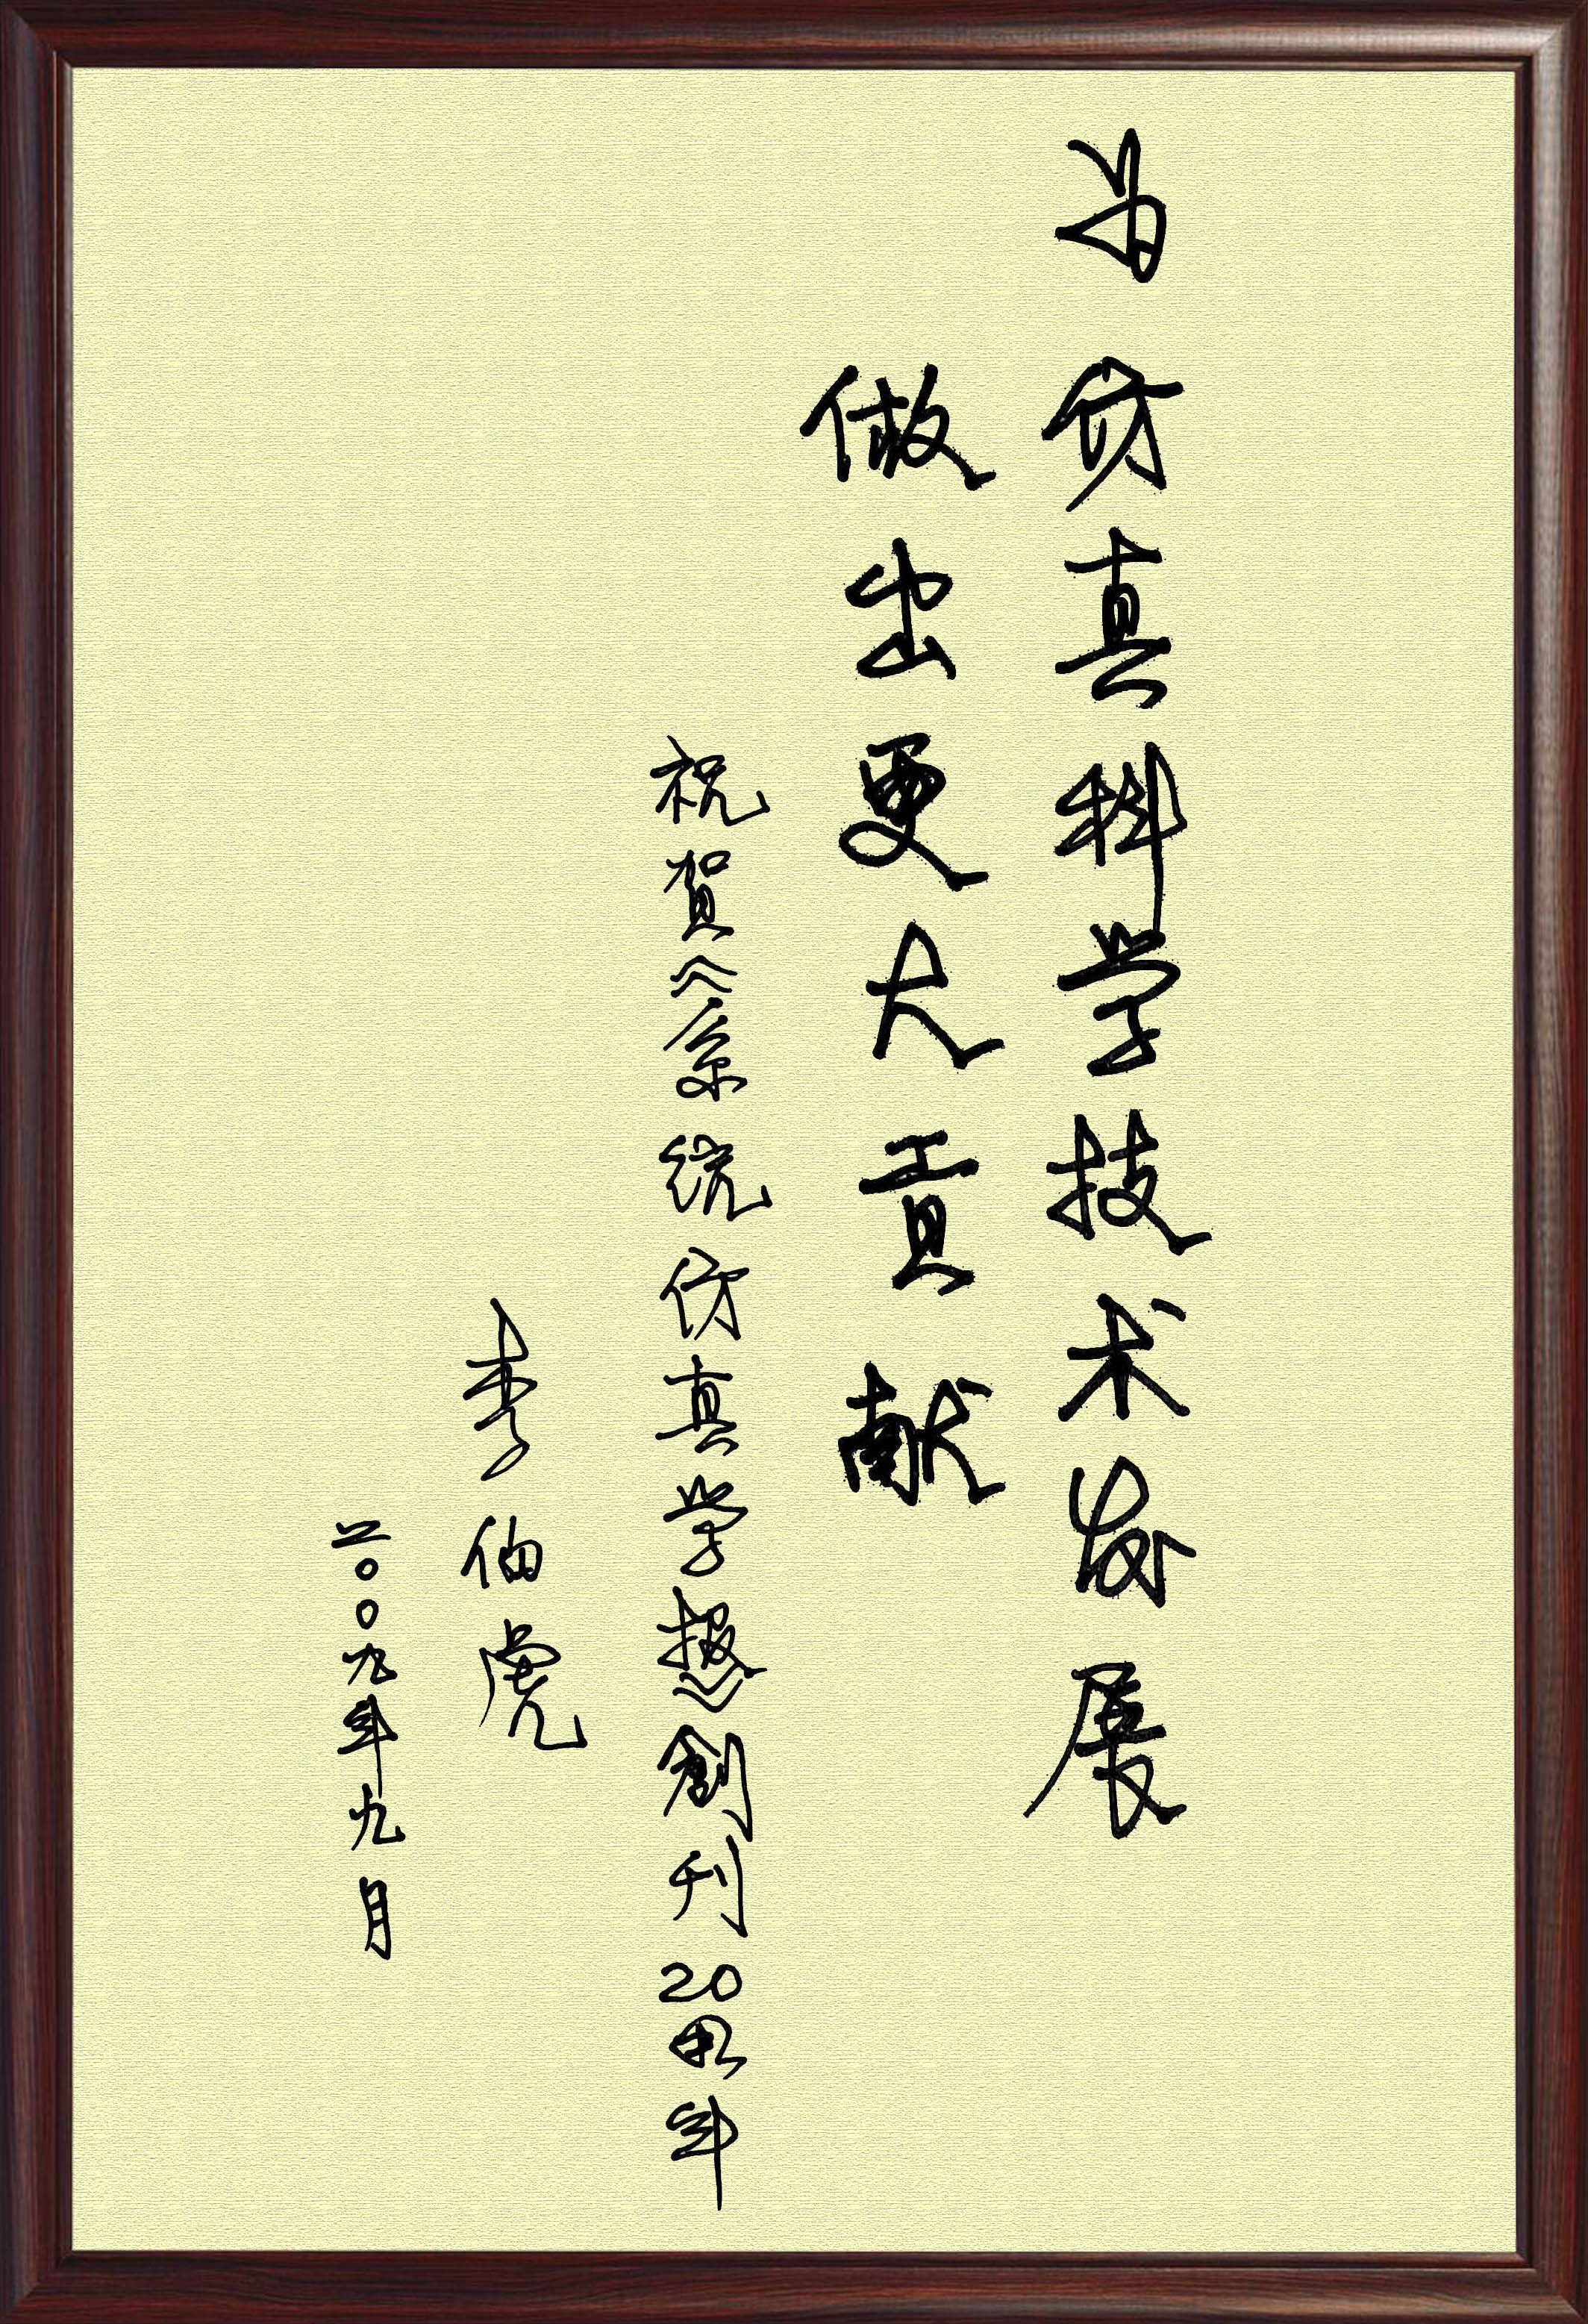 为仿真科学技术发展
做出更大贡献
祝贺《系统仿真学报》创刊20周年
李伯虎
二〇〇九年九月